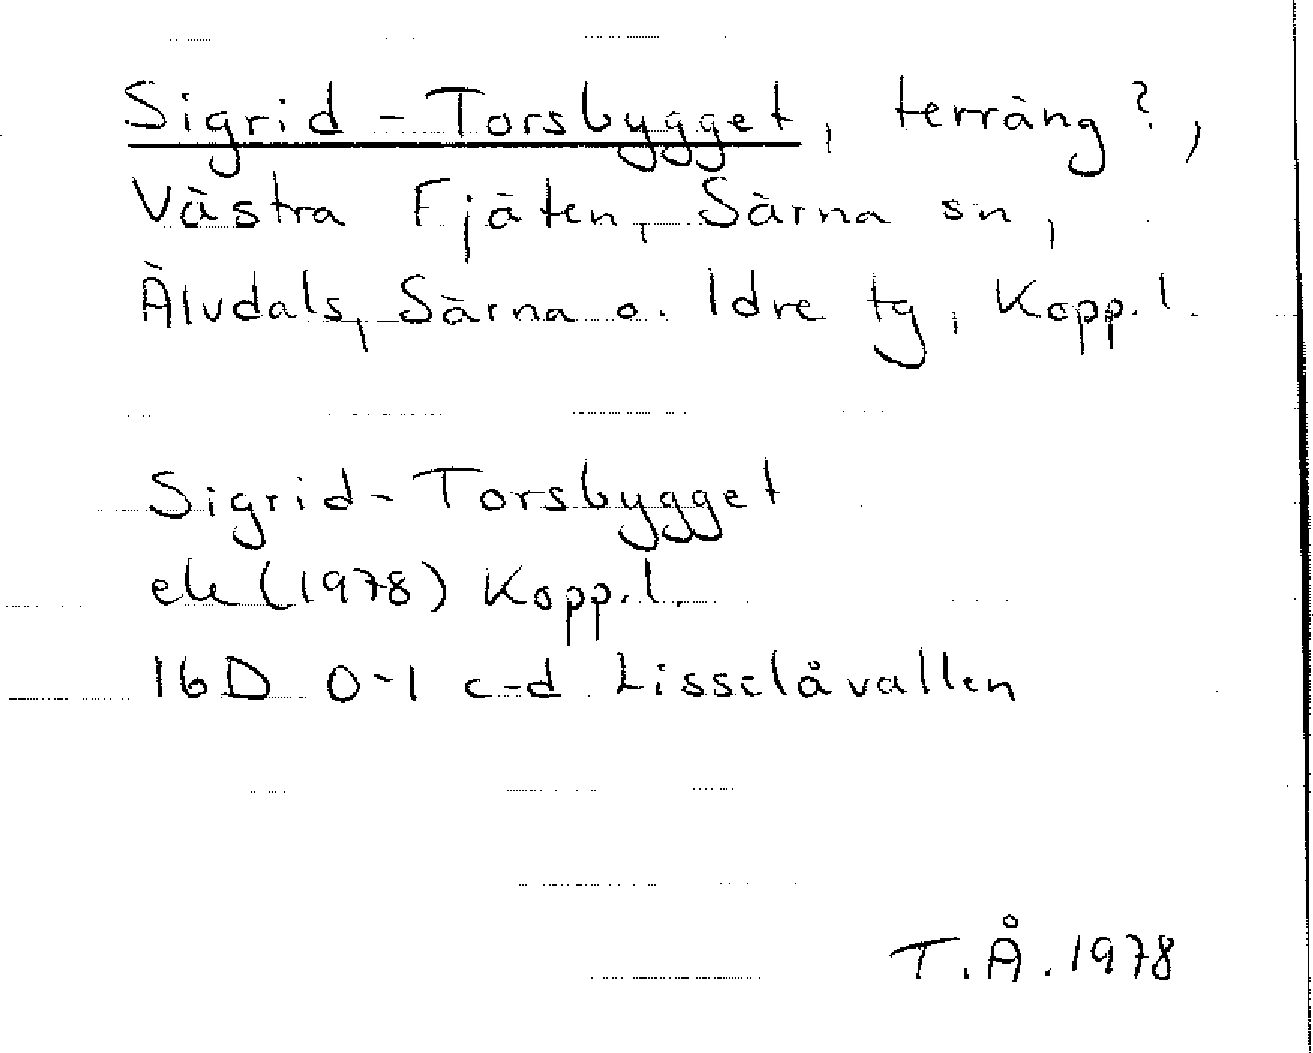 Sigrid-Torsbygget, terräng?,
Västra Fjäten, Särna sn,
Älvdals, Särna o. Idre tg, Kopp.l.
Sigrid-Torsbygget
ek (1978) Kopp.l.
16D 0-1 c-d Lisselåvallen
T.Å.1978